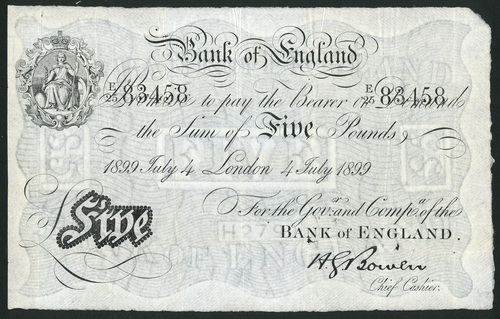 Bank of England
E/25 83458 E/25 83458
Promise to pay the Bearer on Demand
the Sum of Five Pounds
1899 July 4 London 4 July 1899
For the Govr. and Compa. of the
BANK of ENGLAND.
Five
H G Bowen
Chief Cashier.